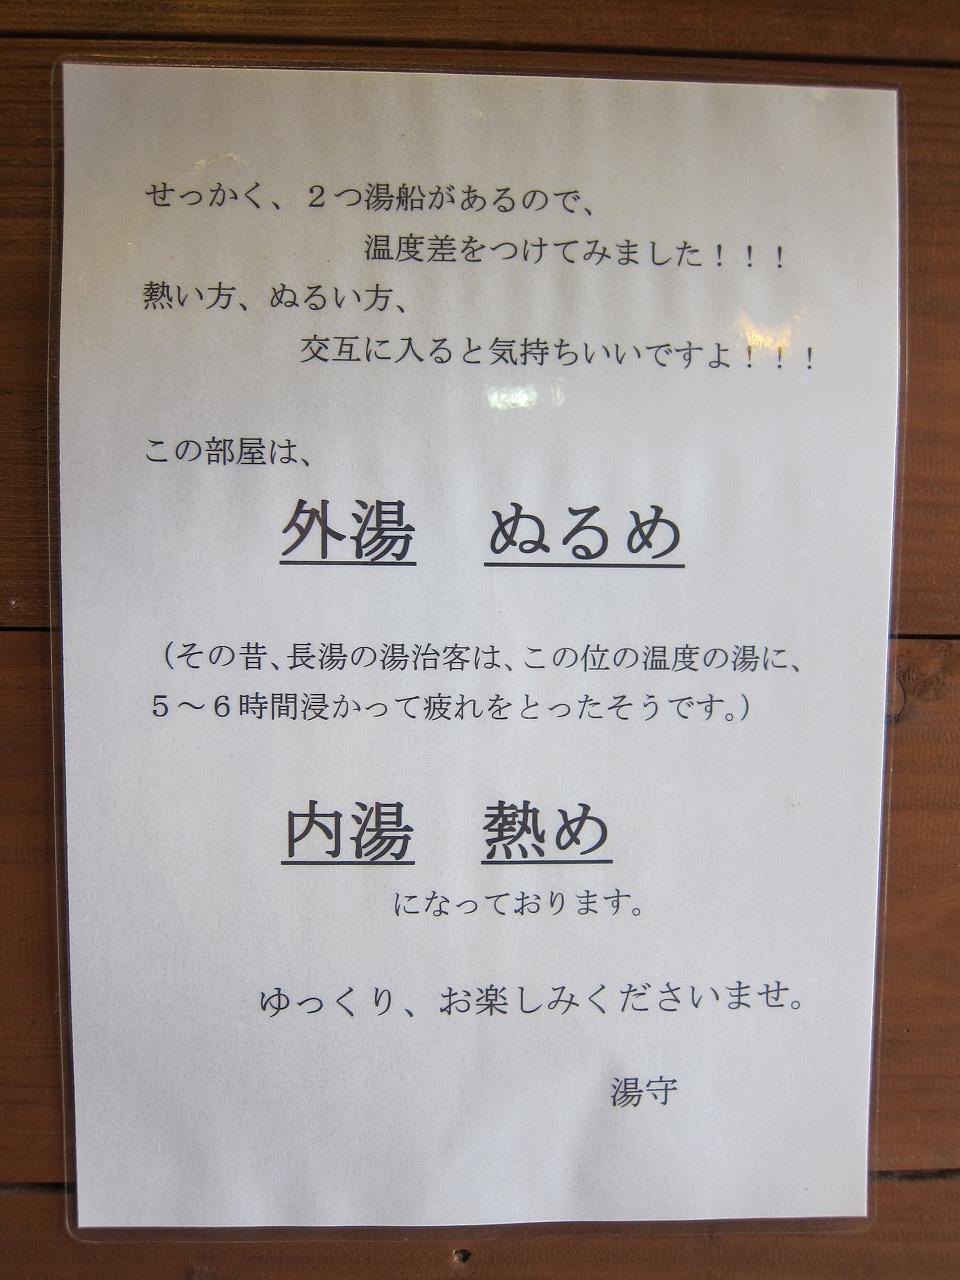 せっかく、２つ湯船があるので、
温度差をつけてみました！！！
熱い方、ぬるい方、
交互に入ると気持ちいいですよ！！！
この部屋は、
外湯　ぬるめ
（その昔、長湯の湯治客は、この位の温度の湯に、
５～６時間浸かって疲れをとったそうです。）
内湯　熱め
になっております。
ゆっくり、お楽しみくださいませ。
湯守